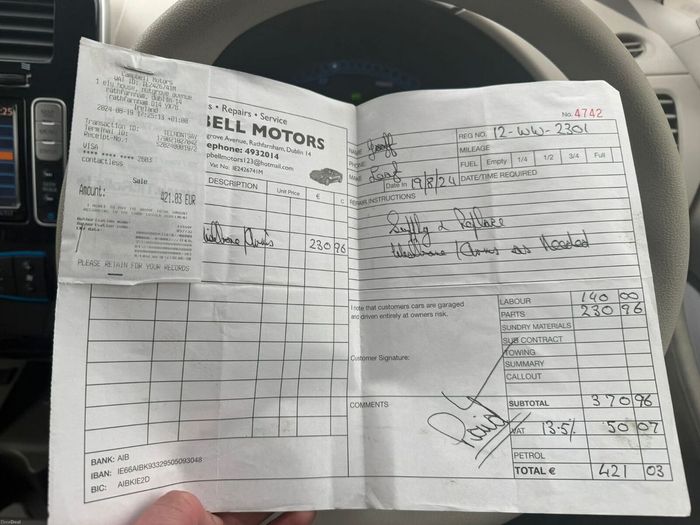 Campbell Motors
VAT ID: IE2426741M
1 ely house, nutgrove avenue
rathfarnham, Dublin 14
rathfarnham D14 YX7E
Ireland
2024-08-19 17:25:13 +01:00
Transaction ID:
Terminal ID:
Receipt-No.:
VISA
**** **** **** 2003
contactless
Sale
Amount:
421.03 EUR
PLEASE RETAIN FOR YOUR RECORDS
s • Repairs • Service
BELL MOTORS
grove Avenue, Rathfarnham, Dublin 14
ephone: 4932014
pbellmotors123@hotmail.com
Vat No. IE2426741M
DESCRIPTION
Unit Price
€
c
230 96
BANK: AIB
IBAN: IE66AIBK93329505093048
BIC: AIBKIE2D
No. 4742
NAME
PHONE
MAKE
Date in 19/8/24
REG NO. 12-WW-2301
MILEAGE
FUEL Empty 1/4 1/2 3/4 Full
DATE/TIME REQUIRED
REPAIR INSTRUCTIONS
Supply & Replace
Wishbone as Needed
I note that customers cars are garaged
and driven entirely at owners risk.
Customer Signature:
COMMENTS
Paid
LABOUR 140 00
PARTS 230 96
SUNDRY MATERIALS
SUB CONTRACT
TOWING
SUMMARY
CALLOUT
SUBTOTAL 370 96
VAT 13.5% 50 07
PETROL
TOTAL € 421 03